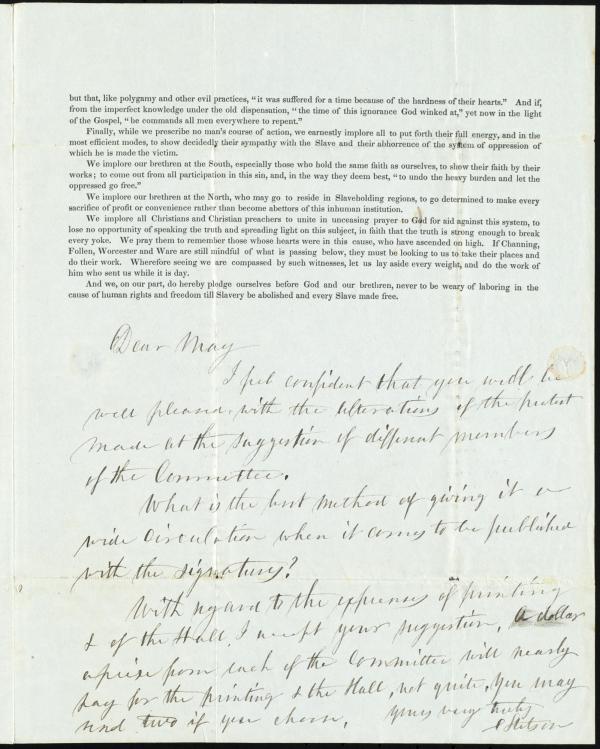 but that, like polygamy and other evil practices, “it was suffered for a time because of the hardness of their hearts.” And if,
from the imperfect knowledge under the old dispensation, “the time of this ignorance God winked at,” yet now in the light
of the Gospel, “he commands all men everywhere to repent.”
Finally, while we prescribe no man's course of action, we earnestly implore all to put forth their full energy, and in the
most efficient modes, to show decidedly their sympathy with the Slave and their abhorrence of the system of oppression of
which he is made the victim.
We implore our brethren at the South, especially those who hold the same faith as ourselves, to show their faith by their
works; to come out from all participation in this sin, and, in the way they deem best, “to undo the heavy burden and let the
oppressed go free.”
We implore our brethren at the North, who may go to reside in Slaveholding regions, to go determined to make every
sacrifice of profit or convenience rather than become abettors of this inhuman institution.
We implore all Christians and Christian preachers to unite in unceasing prayer to God for aid against this system, to
lose no opportunity of speaking the truth and spreading light on this subject, in faith that the truth is strong enough to break
every yoke. We pray them to remember those whose hearts were in this cause, who have ascended on high. If Channing,
Follen, Worcester and Ware are still mindful of what is passing below, they must be looking to us to take their places and
do their work. Wherefore seeing we are compassed by such witnesses, let us lay aside every weight, and do the work of
him who sent us while it is day.
And we, on our part, do hereby pledge ourselves before God and our brethren, never to be weary of laboring in the
cause of human rights and freedom till Slavery be abolished and every Slave made free.
Dear May
I feel confident that you will be
well pleased with the alterations of the protest
made at the suggestion of different members
of the Committee.
What is the best method of giving it a
wide circulation when it comes to be published
with the signatures?
With regard to the expenses of printing
& of the Hall, I accept your suggestion. A dollar
apiece from each of the Committee will nearly
pay for the printing & the Hall, not quite. You may
send two if you choose. Yours very truly
C Stetson